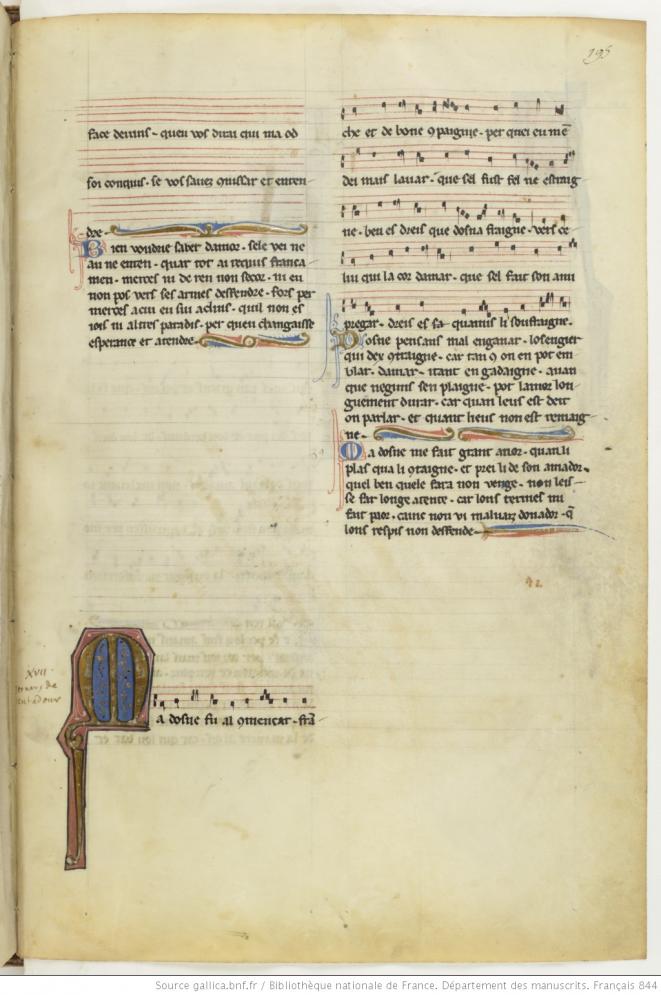 195
face devins · queu vos dirai qui ma od
soi conquis · se vos savez
dre
Bien voudrie saver damor · sele vei ne
au ne enten · quar tot ai requis franca
men · merces ni de ren non secor · ni eu
non pos vers ses armes deffendre · fors per
merces aciu eu sui aclins · quil non es
iois ni altres paradis · per queu changaisse
esperance et atendre
XVII
M
a dosne fu al 9mencar · frã
che et de bone 9paignie · per quei eu mẽ
dei mais lauar · que sel fust fel ne estraig
ne · ben es dreis que dosna fraigne · vers ce
lui qui la cor damar · que sel fait son ami
pregar · dreis es sa li souffraigne ·
Dosne pensaris mal enganar · losengier
qui dex 9traigne · car tan 9 on en pot em
blar · damar · itant en gadaigne · auan
que neguns sen plaigne · pot lamor lon
guement durar · car quan leus est deit
on parlar · et quant lieus non est remaig
ne
Ma dosne me fait grant anor · quan li
plas qua li 9taigne · et prei li de son amador ·
quel ben quele fara non venge · non leis
se far longe atente · car lons termes mi
fait paor · canc non vi malvatz donador · q̃
lons respis non deffende
Source gallica.bnf.fr / Bibliothèque nationale de France. Département des manuscrits. Français 844